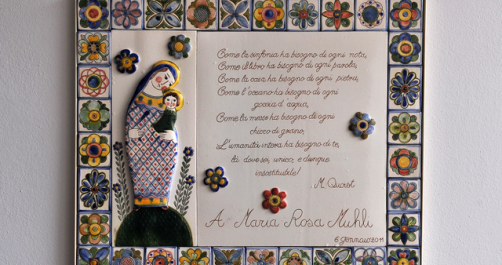 Come la sinfonia ha bisogno di ogni nota,
Come il libro ha bisogno di ogni parola,
Come la casa ha bisogno di ogni pietra,
Come l'oceano ha bisogno di ogni
goccia d'acqua,
Come la messe ha bisogno di ogni
chicco di grano,
L'umanità intera ha bisogno di te,
là dove sei, unico, e dunque
insostituibile!
M. Quoist
A Maria Rosa Muhli
6 Gennaio 2011